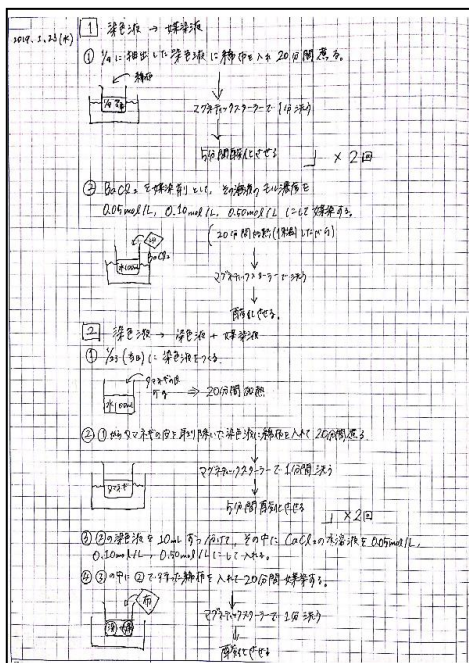 2019.1.23(水)
1 染色液 → 媒染液
① 1/9に抽出した染色液に綿布を入れ20分間煮る。
綿布
マグネティックスターラーで1分洗う
5分間酸化させる
×2回
② BaCl₂を媒染剤として、その溶液のモル濃度を
0.05mol/L, 0.10mol/L, 0.50mol/Lにして媒染する。
布
(20分間加熱
BaCl₂
水100mL
マグネティックスターラーで洗う
酸化させる。
2 染色液 → 染色液 + 媒染液
① 1/23(当日)に染色液をつくる。
タマネギの皮
水100mL
⇒ 20分間加熱
② ①からタマネギの皮を取り除いた染色液に綿布を入れて20分間煮る
マグネティックスターラーで1分間洗う
タマネギ
5分間酸化させる
×2回
③ ②の染色液を10mLずつ分けて、その中にCaCl₂の水溶液を0.05mol/L,
0.10mol/L, 0.50mol/Lにして入れる。
④ ③の中に②で作った綿布を入れて20分間媒染する。
布
マグネティックスターラーで1分洗う
酸化させる